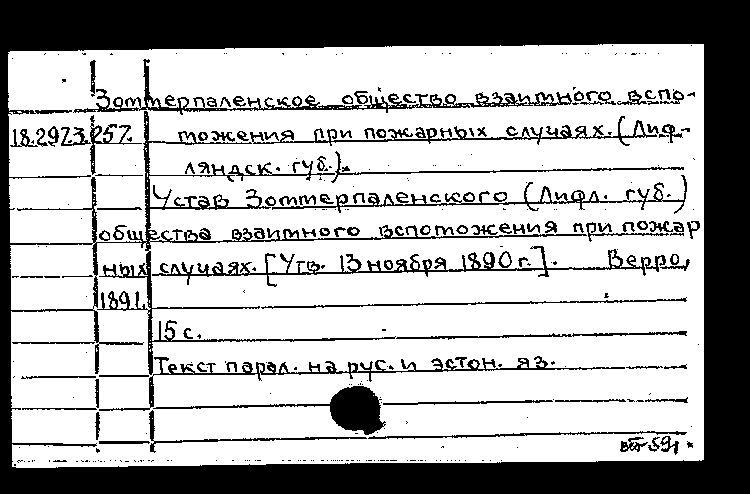 Зоттерпаленское общество взаимного вспо-
18.297.3.257. можения при пожарных случаях. (Лиф-
ляндск. губ.).
Устав Зоттерпаленского (Лифл. губ.)
общества взаимного вспоможения при пожар
ных случаях. [Утв. 13 ноября 1890 г.]. Верро,
1891.
15 с.
Текст парал. на рус. и эстон. яз.